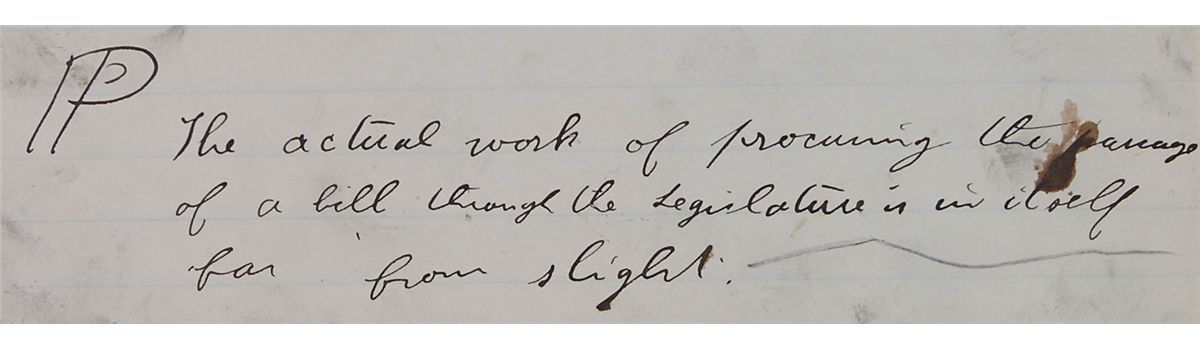 ¶ The actual work of procuring the passage
of a bill through the Legislature is in itself
far from slight.